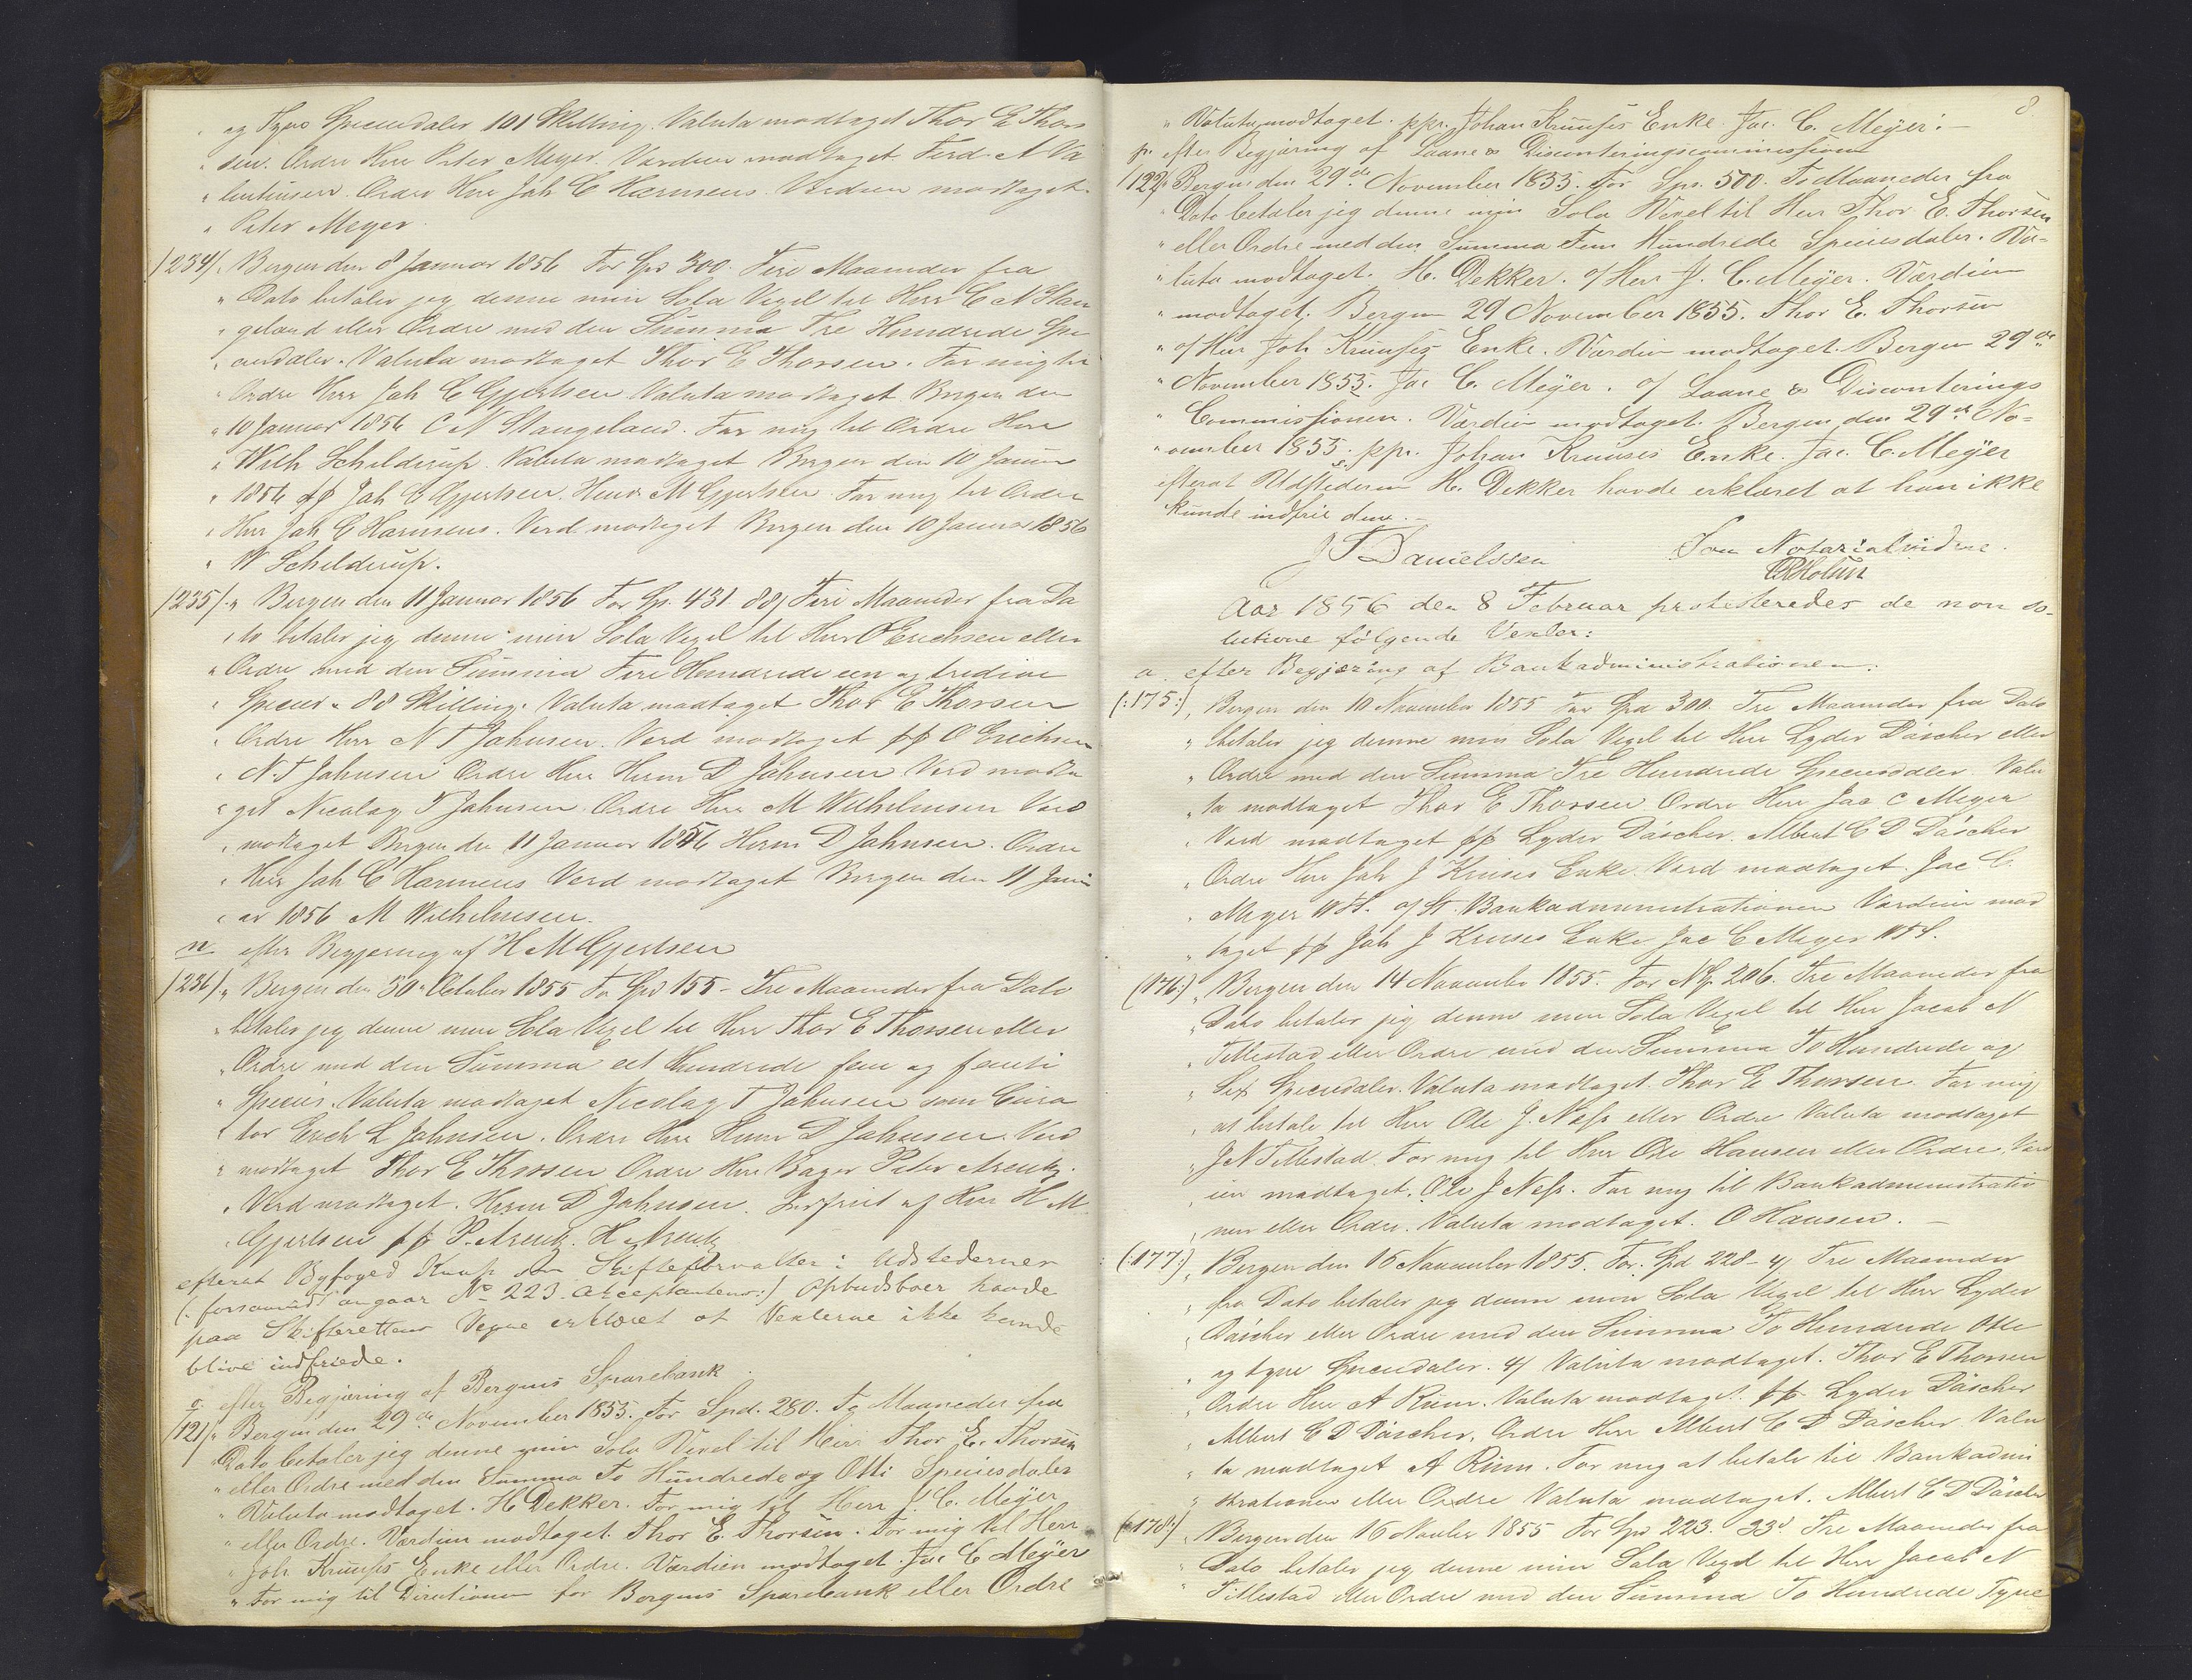 og Tyve Speciedaler 101 Skilling. Valuta modtaget Thor E Thor
" sen. Ordre Herr Peter Meyer. Værdien modtaget Ferd. A Va
" lentinsen. Ordre Herr Joh C Harmens. Værdien modtaget.
" Peter Meyer.
/234/ " Bergen den 8 Januar 1856 For Spd 300. Fire Maaneder fra
" Dato betaler jeg denne min Sola Vexel til Herr C N Stan
" geland eller Ordre med den Summa Tre Hundrede Spe
" ciedaler. Valuta modtaget Thor E Thorsen. For mig til
" Ordre Herr Joh C Gjertsen Valuta modtaget Bergen den
" 10 Januar 1856 C N Stangeland. For mig til Ordre Herr
" Wilh Schelderup. Valuta modtaget Bergen den 10 Januar
" 1856 pp Joh C Gjertsen. Henr M Gjertsen. For mig til Ordre
" Herr Joh C Harmens. Verd. modtaget Bergen den 10 Januar 1856
" W Schelderup.
/235/ " Bergen den 11 Januar 1856 For Sp. 431. 88/ Fire Maaneder fra Da
" to betaler jeg denne min Sola Vexel til Herr O Erichsen eller
" Ordre med den Summa Fire Hundrede een og tredive
" Species " 88 Skilling. Valuta modtaget Thor E Thorsen
" Ordre Herr N T Johnsen. Verd modtaget pp O Erichsen
" N. T Johnsen Ordre Herr Herm D Johnsen Verd modta
" get Nicolay T Johnsen. Ordre Herr M Wilhelmsen Verd
" modtaget Bergen den 11 Januar 1856 Herm D Johnsen. Ordre
" Herr Joh C Harmens Verd modtaget Bergen den 11 Janu
" ar 1856 M Wilhelmsen.
n efter Begjering af H M Gjertsen
/236/ " Bergen den 30 October 1855 For Spd 155 - Tre Maaneder fra Dato
" betaler jeg denne min Sola Vexel til Herr Thor E Thorsen eller
" Ordre med den Summa eet Hundrede fem og femti
" Species. Valuta modtaget Nicolay T Johnsen som Cura
" tor Erich L Johnsen. Ordre Herr Herm D Johnsen. Verd
" modtaget Thor E Thorsen Ordre Herr Bager Peter Arentz.
" Verd modtaget. Herm D Johnsen. Indfriet af Herr H M
" Gjertsen pp P. Arentz. H Arentz
efterat Byfoged Knap som Skifteforvalter i Udstederner
(: forsaavidt angaar No 223. Acceptantens:) Opbudsboer havde
paa Skifterettens Vegne erklæret at Vexlerne ikke kunde
blive indfriede.
o. efter Begjæring af Bergens Sparebank
/121/ " Bergen den 29de November 1855. For Spd. 280. To Maaneder fra
" Dato betaler jeg denne min Sola Vexel til Herr Thor E. Thorsen
" eller Ordre med den Summa To Hundrede og Otti Speciesdaler
" Valuta modtaget. H Dekker. For mig til Herr J. C. Meÿer
" eller Ordre. Værdien modtaget. Thor E. Thorsen. For mig til Herr
" Joh. Kruuses Enke eller Ordre. Værdien modtaget. Jac C Meÿer
" For mig til Directionen for Bergens Sparebank eller Ordre
8
" Valuta modtaget. ppr. Johan Kruuses Enke. Jac. C. Meÿer. -
p. efter Begjæring af Laane & Disconteringscommissionen
/122/ " Bergen den 29de November 1855. For Sps. 500. To Maaneder fra
" Dato betaler jeg denne min Sola Vexel til Herr Thor E. Thorsen
" eller Ordre med den Summa Fem Hundrede Speciesdaler. Va=
" luta modtaget. H. Dekker. o/ Herr J. C. Meÿer. Værdien
" modtaget. Bergen 29 November 1855. Thor E. Thorsen
" o/ Herr Joh Kruuses Enke. Værdien modtaget. Bergen 29de
" November 1855. Jac C. Meÿer. o/ Laane & Disconterings
" Commissionen. Værdien modtaget. Bergen den 29de No=
" vember 1855. ppr. Johan Kruuses Enke. Jac. C. Meÿer
efterat Udstederen H. Dekker havde erklæret at han ikke
kunde indfrie dem. -
J F Danielssen
Som Notarialvidne.
CR Holm
Aar 1856 den 8 Februar protesteredes de non so-
lutione følgende Vexler:
a. efter Begjæring af Bankadministrationen:
(:175:) " Bergen den 10 November 1855 For Spd 300. Tre Maaneder fra Dato
" betaler jeg denne min Sola Vexel til Herr Lyder Däscher eller
" Ordre med den Summa Tre Hundrede Speciesdaler. Valu
" ta modtaget Thor E Thorsen Ordre Herr Jac C Meyer
" Verd modtaget pp Lyder Däscher. Albert C D Däscher
" Ordre Herr Joh J Kruses Enke Verd modtaget. Jac C.
" Meyer o/ St. Bankadministrationen Værdien mod
" taget pp Joh J Kruses Enke Jac C Meyer
(176:) " Bergen den 14 November 1855. For Sp. 206. Tre Maaneder fra
" Dato betaler jeg denne min Sola Vexel til Herr Jacob N
" Tillestad eller Ordre med den Summa To Hundrede og
" Sex Speciedaler. Valuta modtaget. Thor E Thorsen. For mig
" at betale til Herr Ole J. Næss eller Ordre Valuta modtaget
" J N Tillestad. For mig til Herr Ole Hansen eller Ordre. Værd
" ien modtaget. Ole J Næss. For mig til Bankadministratio
" nen eller Ordre. Valuta modtaget. O Hansen. -
(:177:) " Bergen den 16 November 1855. For. Spd 228 - 4/ Tre Maaneder
" fra Dato betaler jeg denne min Sola Vexel til Herr Lyder
" Däscher eller Ordre med den Summa To Hundrede Otte
" og tyve Speciedaler. 4/ Valuta modtaget. Thor E Thorsen
" Ordre Herr A Riim. Valuta modtaget. pp Lyder Däscher
" Albert C D Däscher. Ordre Herr Albert C D Däscher. Valu
" ta modtaget A Riim. For mig at betale til Bankadmi
" nistrationen eller Ordre Valuta modtaget. Albert C D Däscher
(:178:) " Bergen den 16 November 1855 For Spd 223. 33/ Tre Maaneder fra
" Dato betaler jeg denne min Sola Vexel til Herr Jacob N
" Tillestad eller Ordre med den Summa To Hundrede Tyve